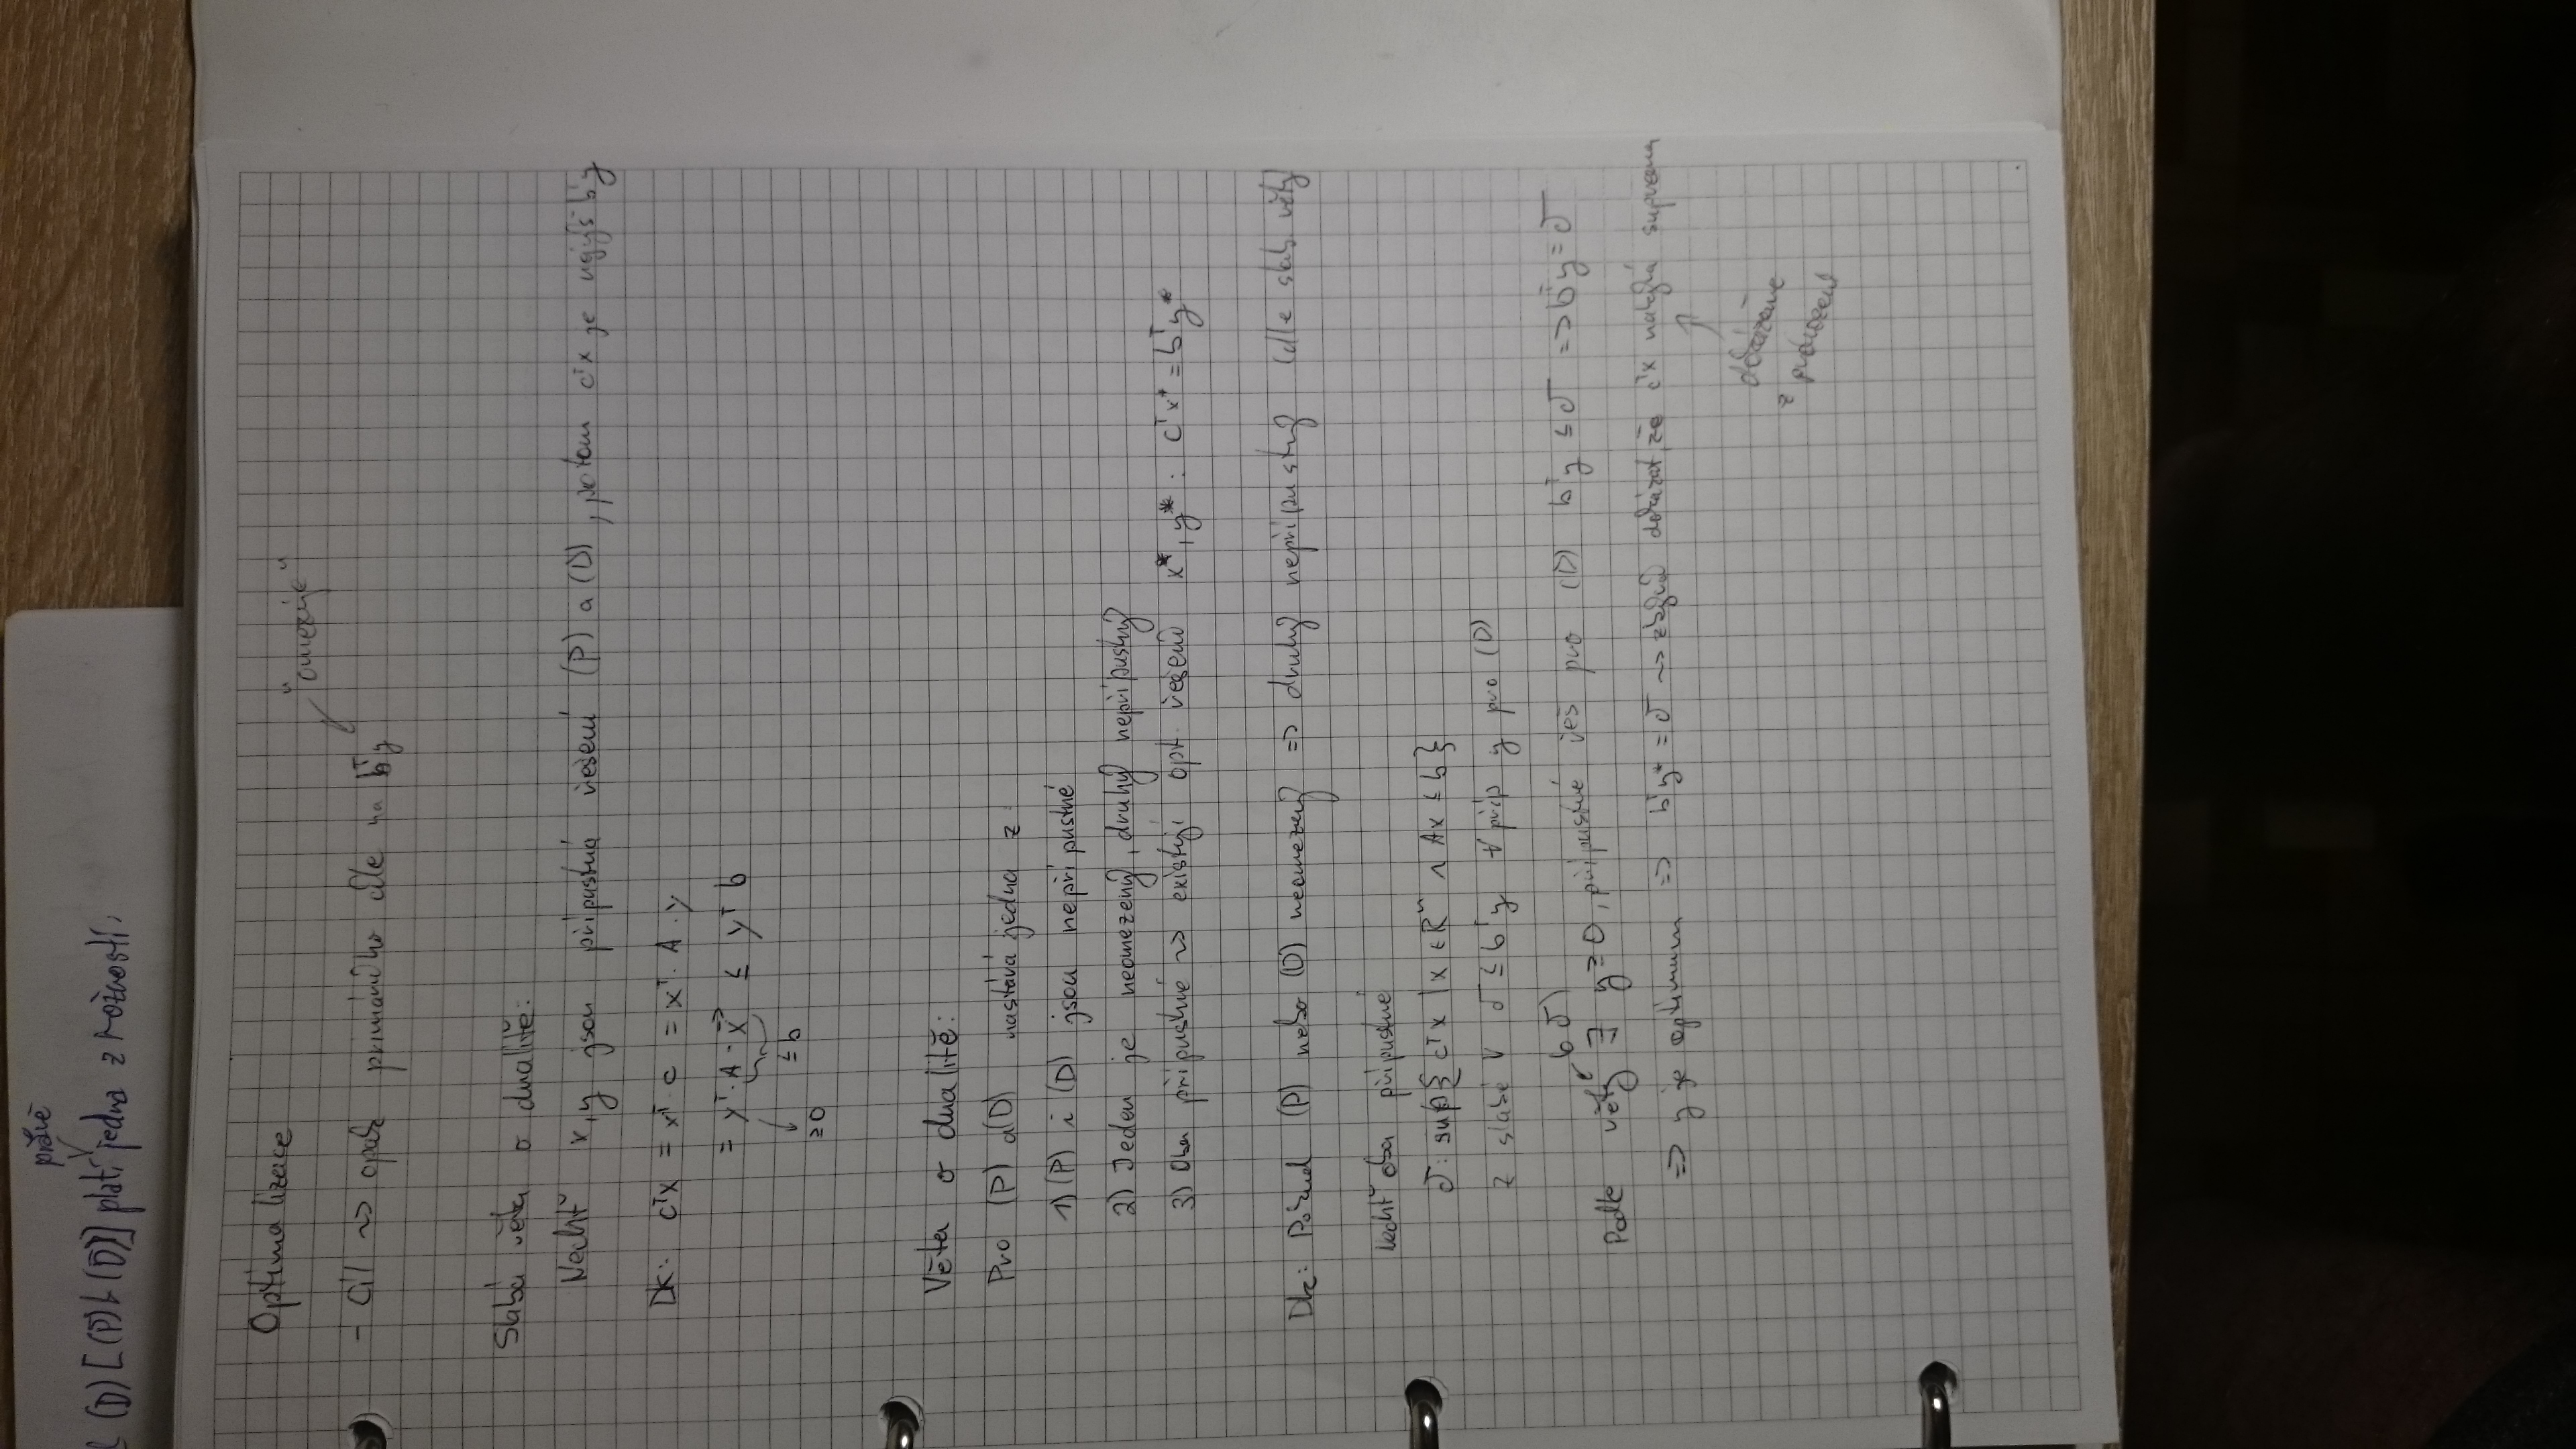 právě
(D) [(P) (D)] platí jedna z možností,
Optimalizace
"omezuje"
- Cíl ~> opak primárního dle na bᵀy
Slabá věta o dualitě:
Nechť x, y jsou přípustná řešení (P) a (D), potom cᵀx je nejvýš bᵀy
Dk: cᵀx = xᵀ · c = xᵀ · A · y
= yᵀ · A · x ≤ yᵀ b
≥0 ≤ b
Věta o dualitě:
Pro (P) a (D) nastává jedna z:
1) (P) i (D) jsou nepřípustné
2) Jeden je neomezený, druhý nepřípustný
3) Oba přípustné ~> existují opt. řešení x*, y* : cᵀx* = bᵀy*
Dk: Pokud (P) nebo (D) neomezený => druhý nepřípustný (dle slab. věty)
Nechť oba přípustné
σ: sup { cᵀx | x ∈ Rⁿ ∧ Ax ≤ b }
z slabé V σ ≤ bᵀy ∀ příp y pro (D)
Podle věty 6 σ) ∃ y ≥ 0, přípustné řeš pro (D) bᵀy ≤ σ => bᵀy = σ
=> y je optimum => bᵀy* = σ ~> zbývá dokázat, že cᵀx nabývá suprema
↑
dokážeme
z